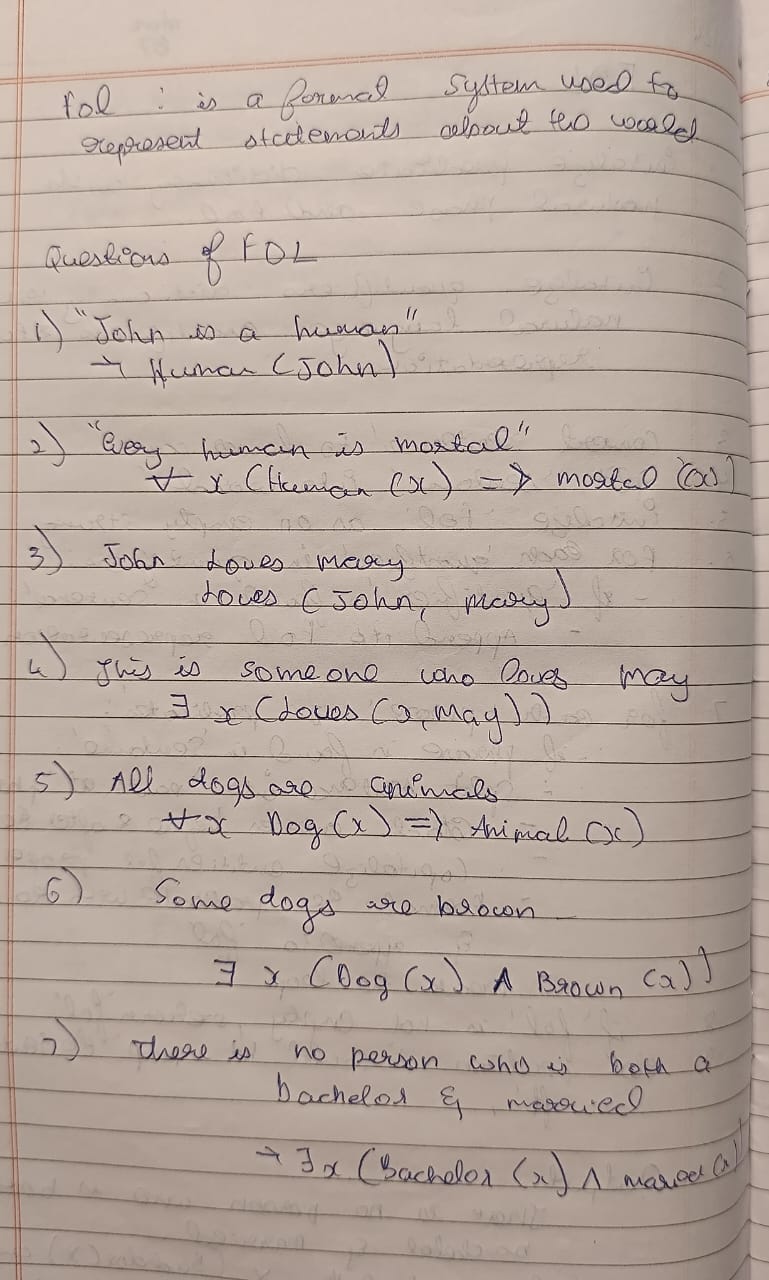 fol : is a formal system used to
represent statements about the world
Questions of FOL
1) "John is a human"
→ Human (John)
2) "Every human is mortal"
∀ x (Human (x) => mortal (x)
3) John Loves mary
Loves (John, mary)
4) This is someone who loves may
∃ x (Loves (x, may))
5) All dogs are animals
∀x Dog (x) => Animal (x)
6) Some dogs are brown
∃ x (Dog (x) ∧ Brown (x))
7) There is no person who is both a
bachelor & married
→ ∃x (Bachelor (x) ∧ (x)